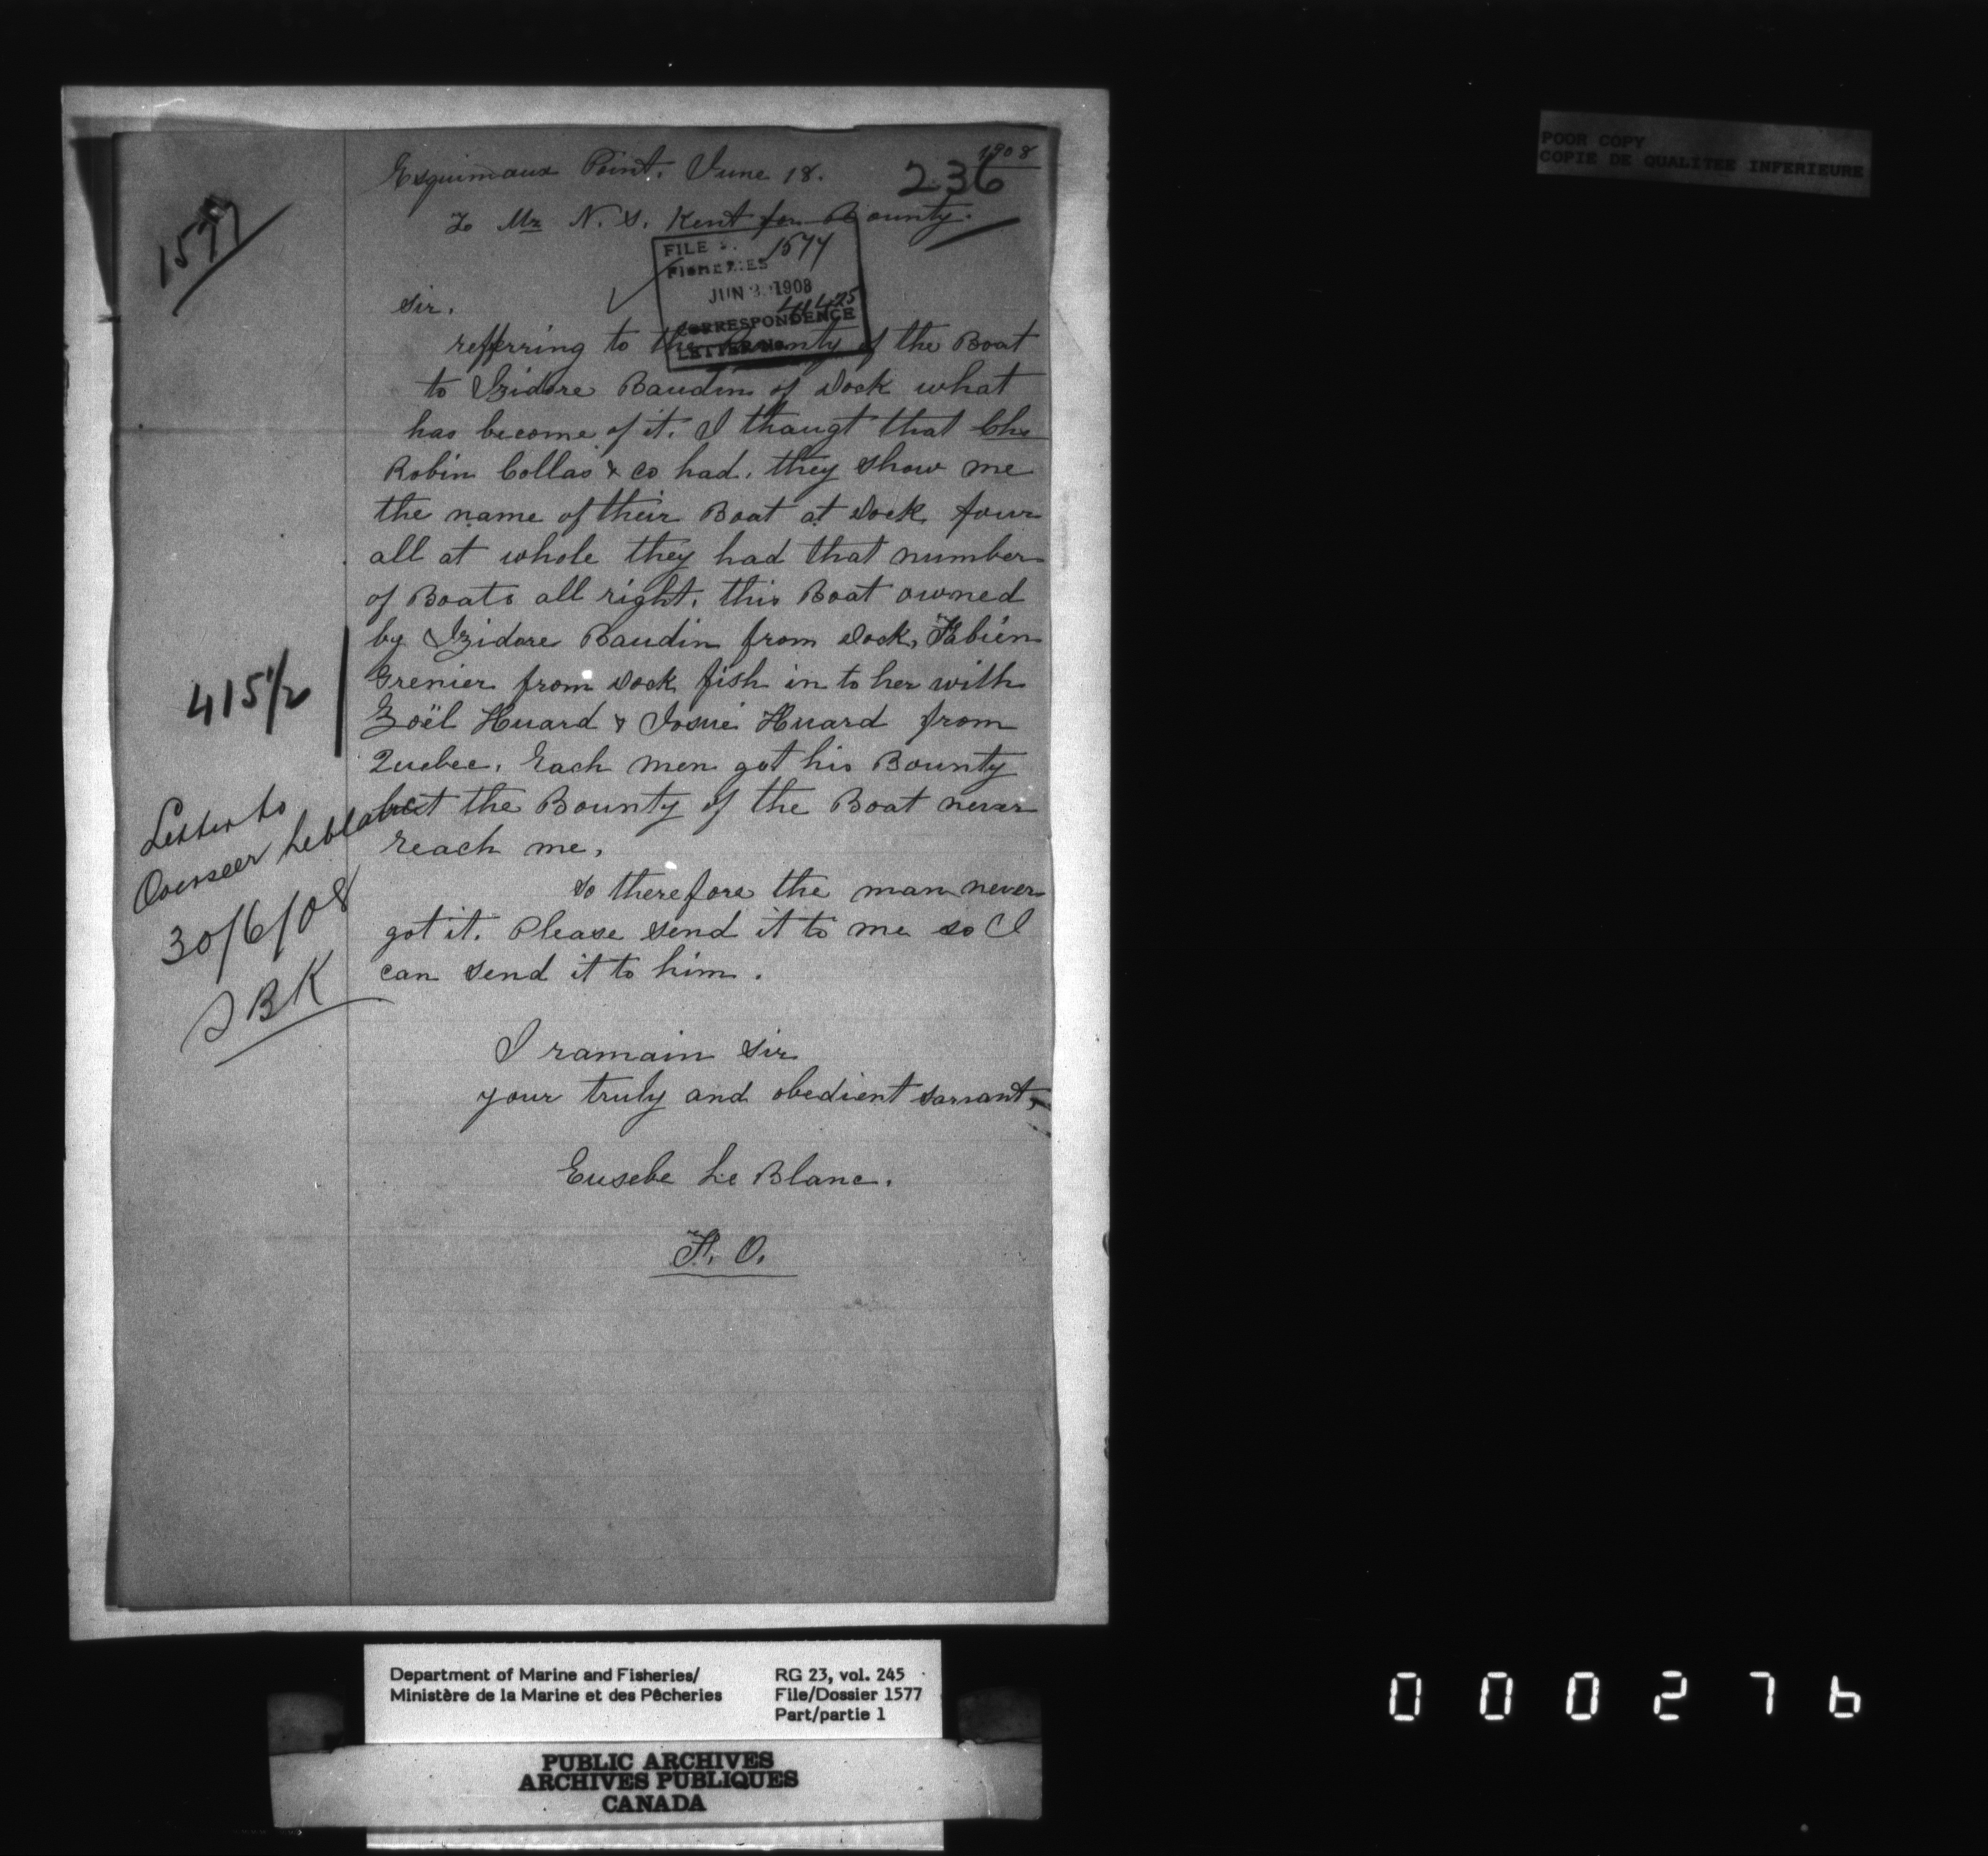 1908
Esquimaux Point. June 18.
236
To Mr N. S. Kent for Bounty.
1577
FILE
FISHERIES 1577
JUN 1908
CORRESPONDENCE
LETTER No.
Sir.
refferring to the Bounty of the Boat
to Izidore Baudin of Dock what
has become of it. I thaugt that Chs
Robin Collas & co had. they show me
the name of their Boat at Dock four
all at whole they had that number
of Boats all right. this Boat owned
by Izidore Baudin from Dock, Fabien
Grenier from Dock fish in to her with
Zoël Huard & Josué Huard from
Quebec. Each men got his Bounty
but the Bounty of the Boat never
reach me.
So therefore the man never
got it. Please send it to me so I
can send it to him.
I ramain Sir
your truly and obedient sarvant,
Eusebe Le Blanc.
F. O.
415 1/2
Letter to
Overseer Leblanc
30/6/08
BK
POOR COPY
COPIE DE QUALITEE INFERIEURE
Department of Marine and Fisheries/
Ministère de la Marine et des Pêcheries
RG 23, vol. 245
File/Dossier 1577
Part/partie 1
PUBLIC ARCHIVES
ARCHIVES PUBLIQUES
CANADA
000276